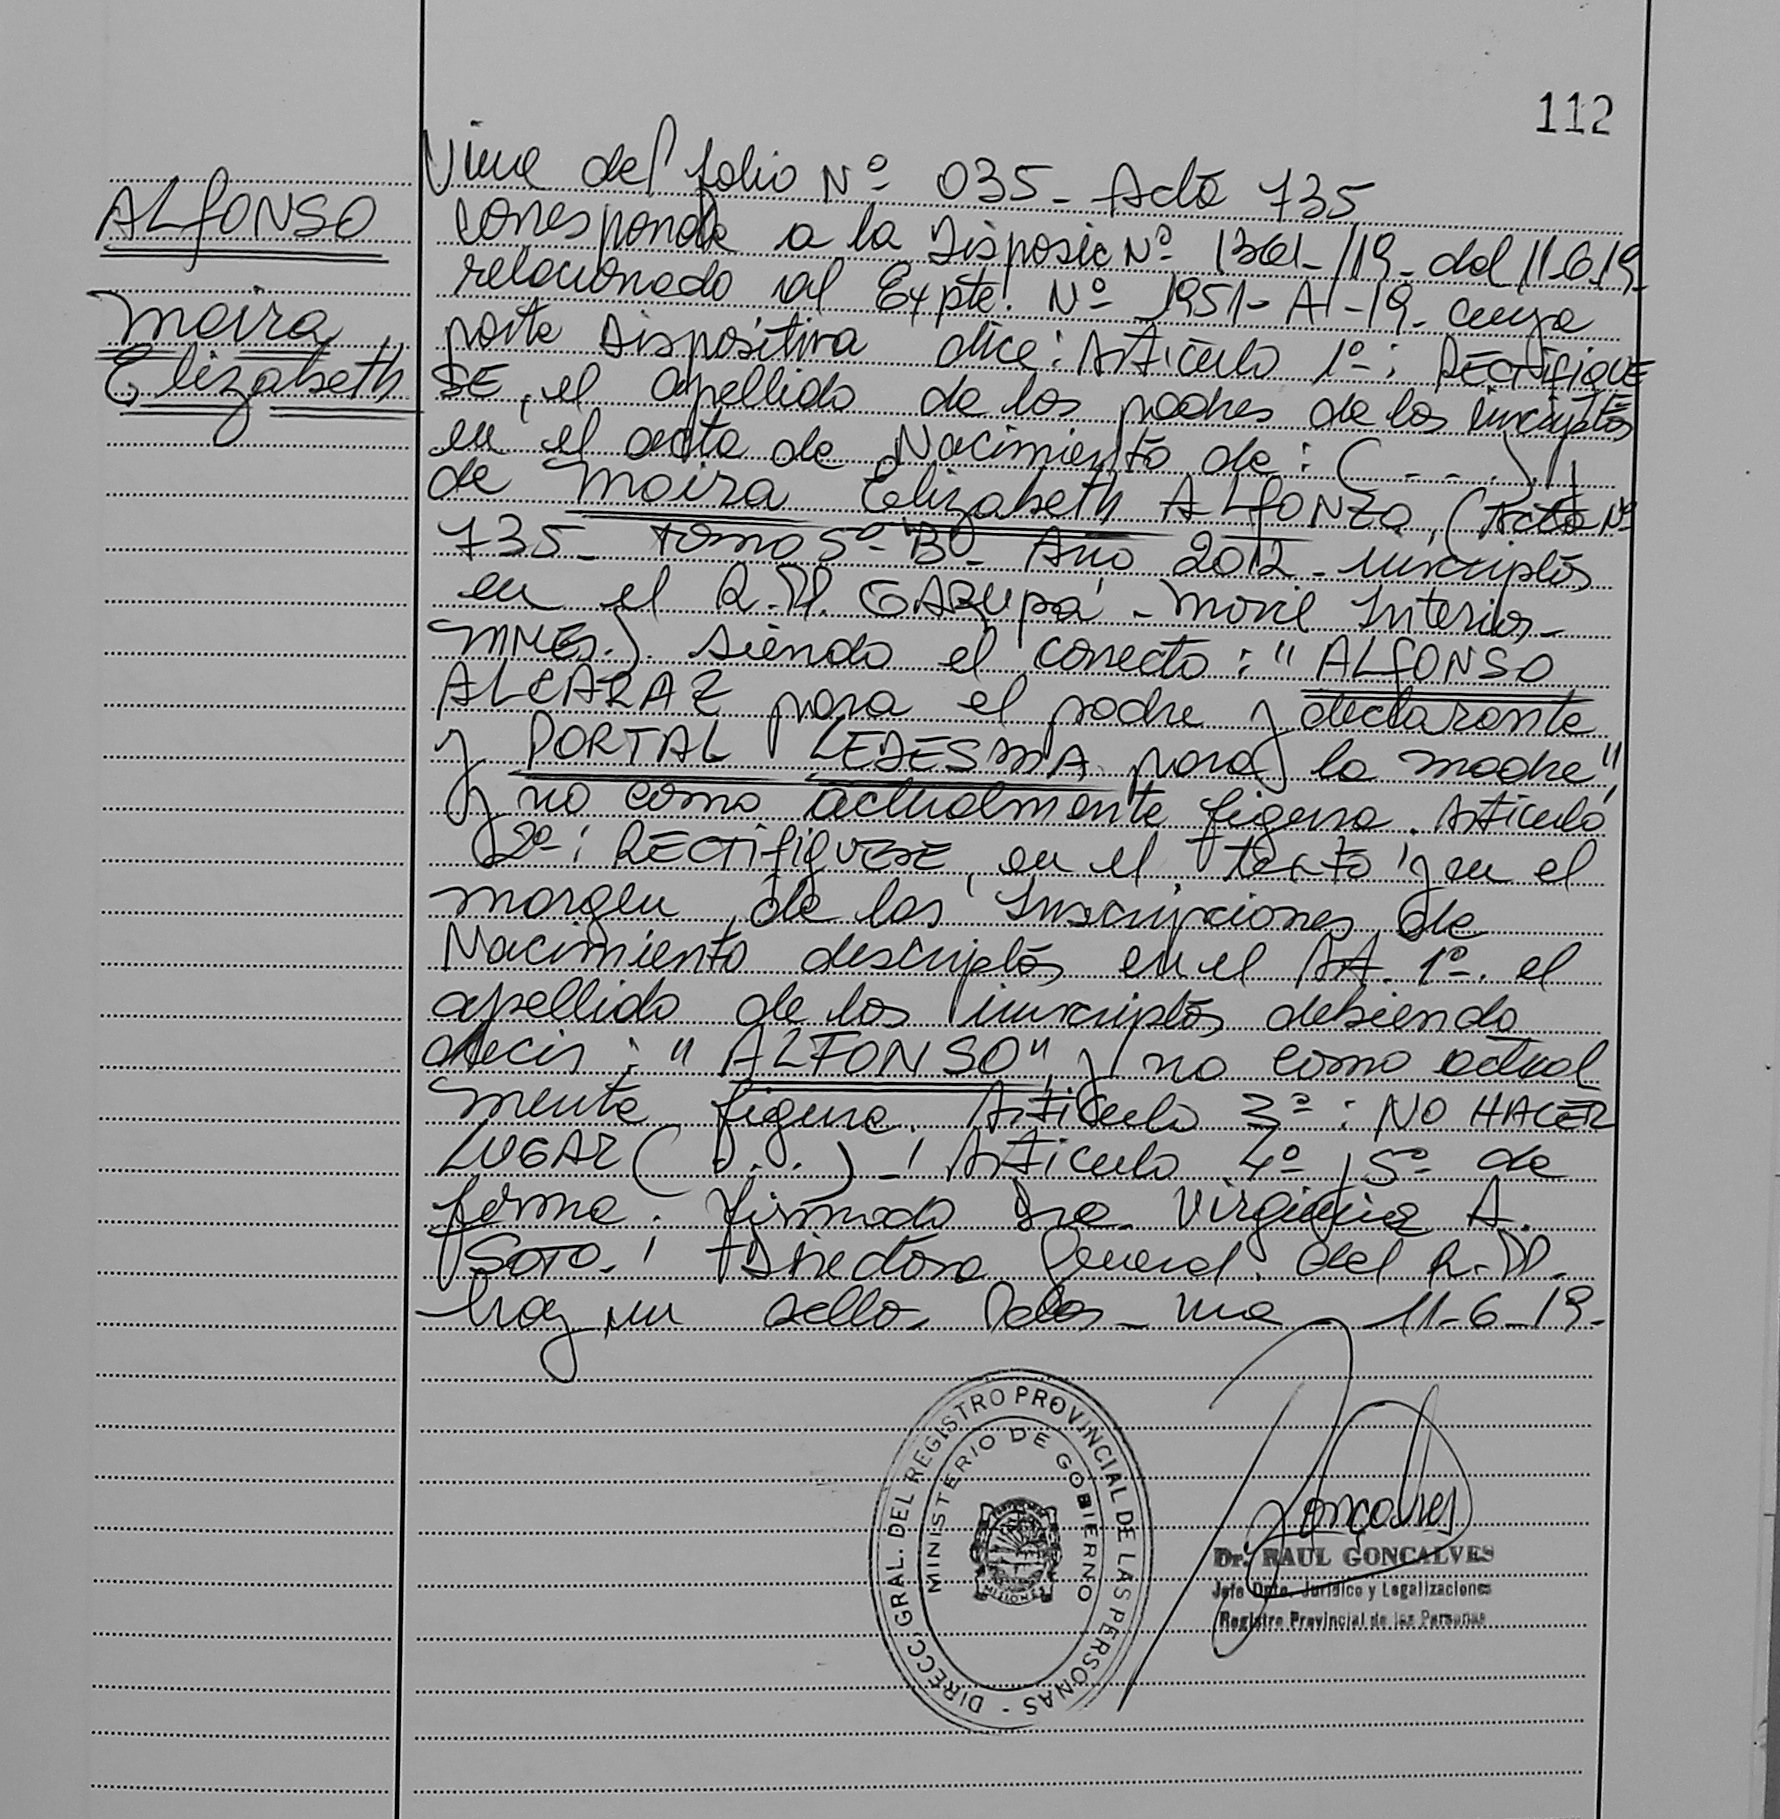 112
ALFONSO
Moira
Elizabeth
Viene del folio Nº 035 - Acta 735
corresponde a la Disposic Nº 1361-/19- del 11-6-19-
relacionado al Expte. Nº 1951- A -19- cuya
parte Dispositiva dice: Artículo 1º: RECTIFIQUE
SE, el apellido de los padres de los inscriptos
en el acta de Nacimiento de: (----)
de Moira Elizabeth ALFONZO, (Acta Nº
735- Tomo 5º- Bº- Año 2012- inscriptos
en el R.P. GARUPÁ - Movil Interior-
MNES.) siendo el correcto: "ALFONSO
ALCARAZ para el padre y declarante
y PORTAL LEDESMA para la madre"
y no como actualmente figura. Artículo
2º: RECTIFIQUESE, en el texto y en el
margen, de las Inscripciones de
Nacimiento descriptos en el Art. 1º. el
apellido de los inscriptos debiendo
decir: "ALFONSO", y no como actual
mente figura. Artículo 3º: NO HACER
LUGAR (....)-, Artículo 4º, 5º de
forma. Firmado Dra. Virginia A.
SOTO. Directora General del R.P.
hay un sello. Pdas- Mnes 11-6-19-
DIRECC. GRAL. DEL REGISTRO PROVINCIAL DE LAS PERSONAS -
MINISTERIO DE GOBIERNO
MISIONES
Goncalves
Dr. RAUL GONCALVES
Jefe Dpto. Jurídico y Legalizaciones
Registro Provincial de las Personas